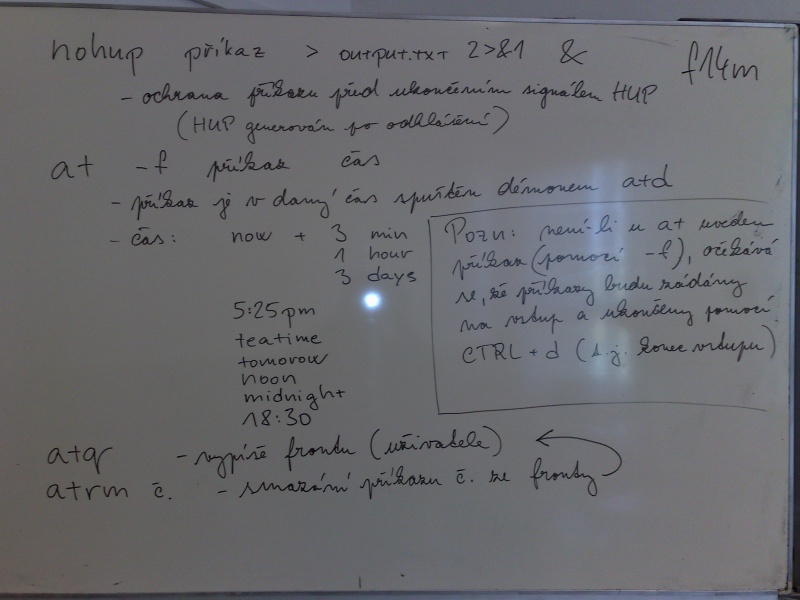 nohup příkaz > output.txt 2>&1 &
f14m
- ochrana příkazu před ukončením signálem HUP
(HUP generován po odhlášení)
at -f příkaz čas
- příkaz je v daný čas spuštěn démonem atd
- čas: now + 3 min
1 hour
3 days
5:25pm
teatime
tomorow
noon
midnight
18:30
Pozn: není-li u at uveden
příkaz (pomocí -f), očekává
se, že příkazy budu zadány
na vstup a ukončeny pomocí
CTRL + d (t.j. konec vstupu)
atq - vypíše frontu (uživatele)
atrm č. - smazání příkazu č. ze fronty